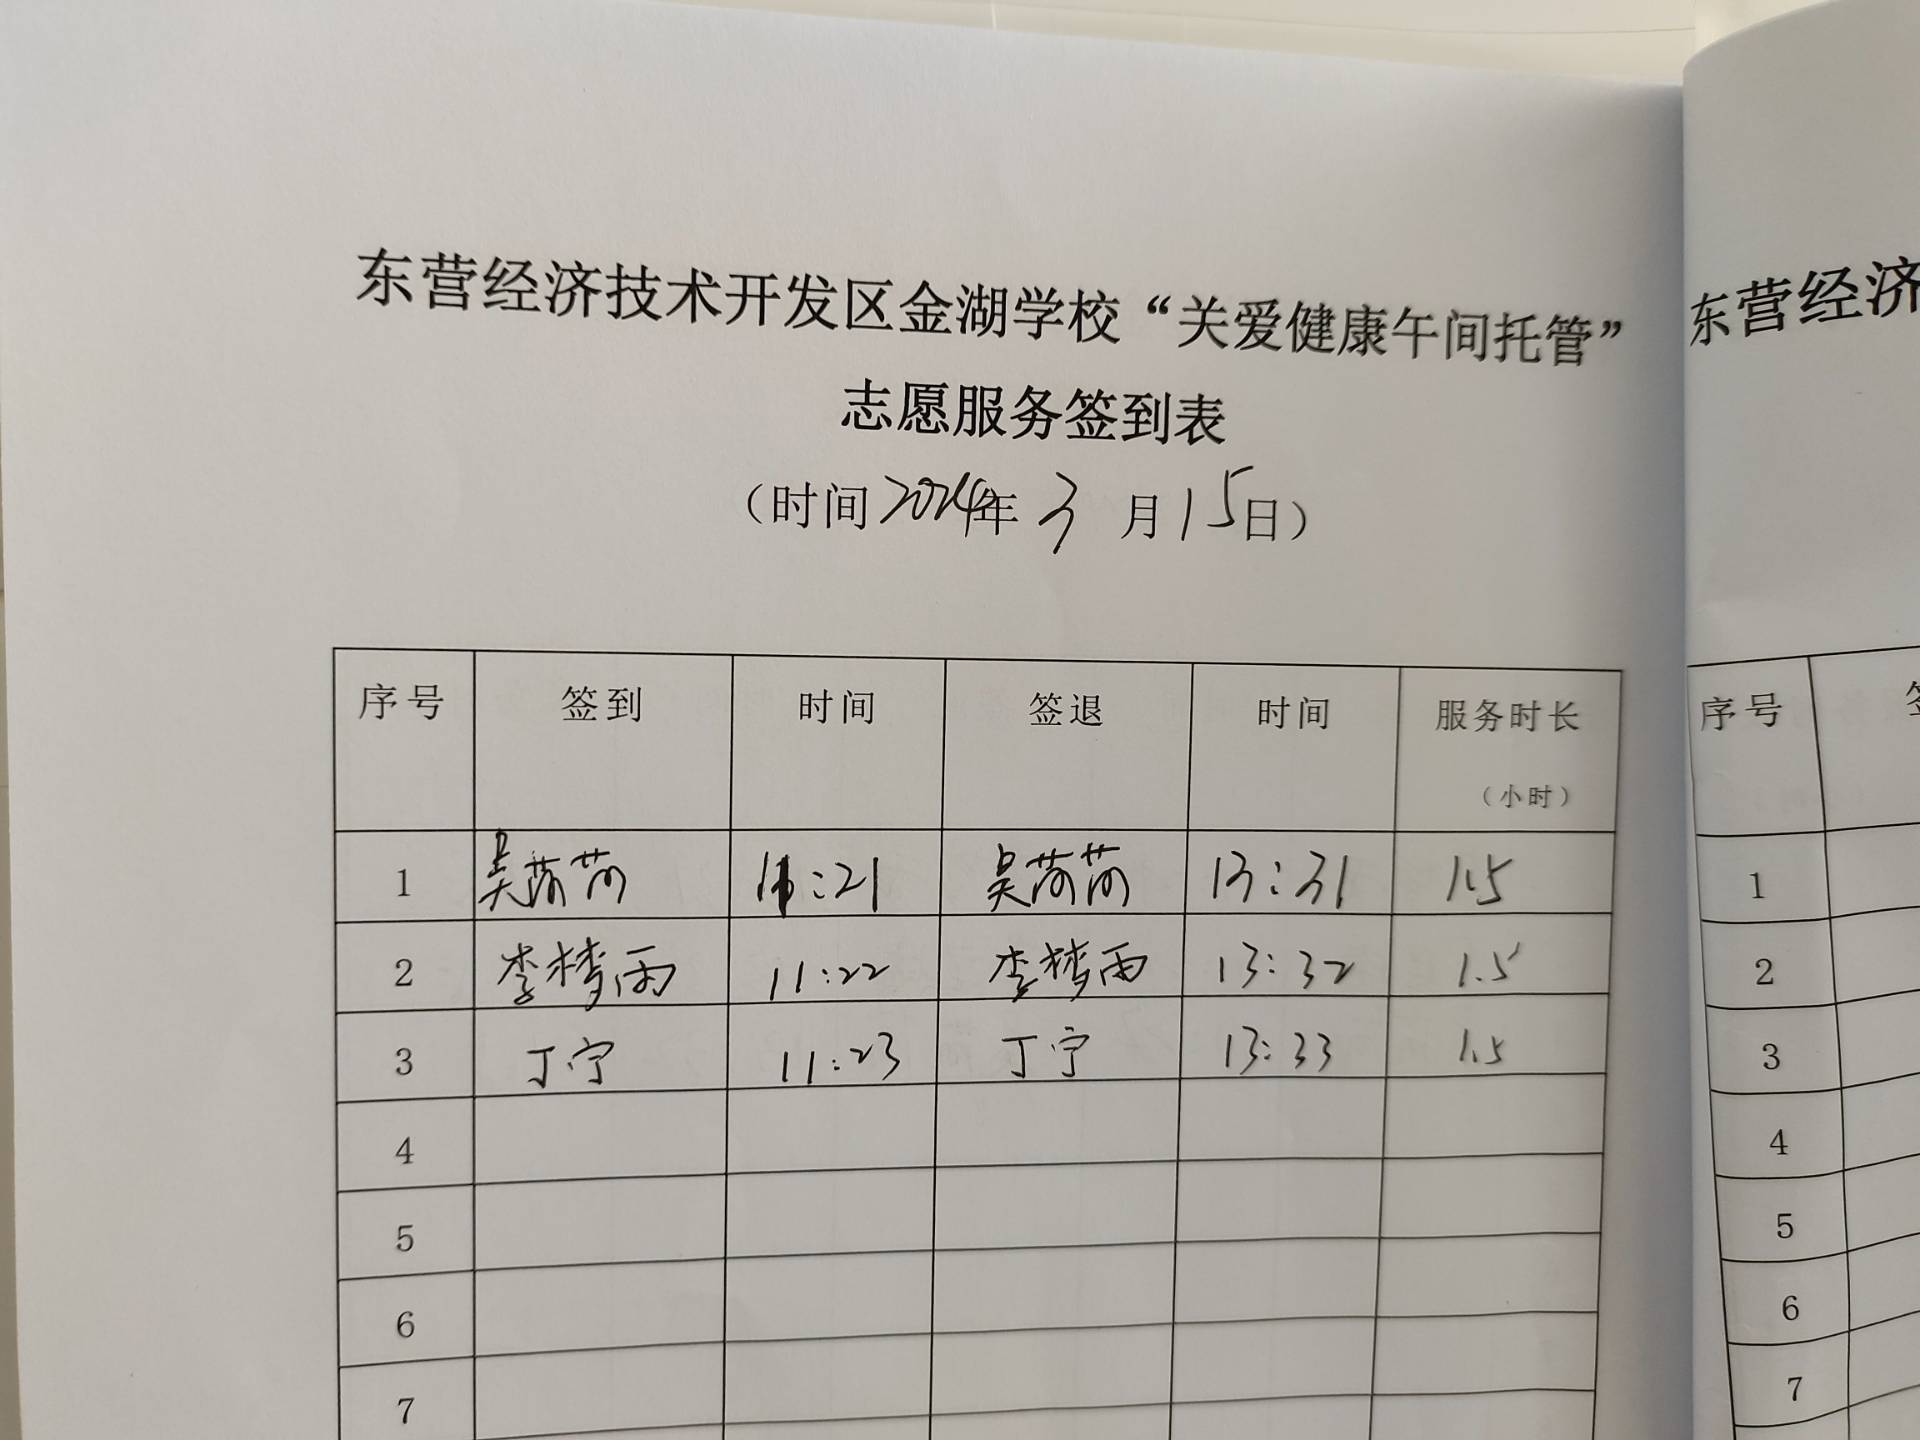 东营经济技术开发区金湖学校“关爱健康午间托管”
志愿服务签到表
（时间2024年 3 月15日）
序号 签到 时间 签退 时间 服务时长
（小时）
1 吴荷荷 11:21 吴荷荷 13:31 1.5
2 李梦雨 11:22 李梦雨 13:32 1.5
3 丁宁 11:23 丁宁 13:33 1.5
4
5
6
7
东营经济
序号
1
2
3
4
5
6
7